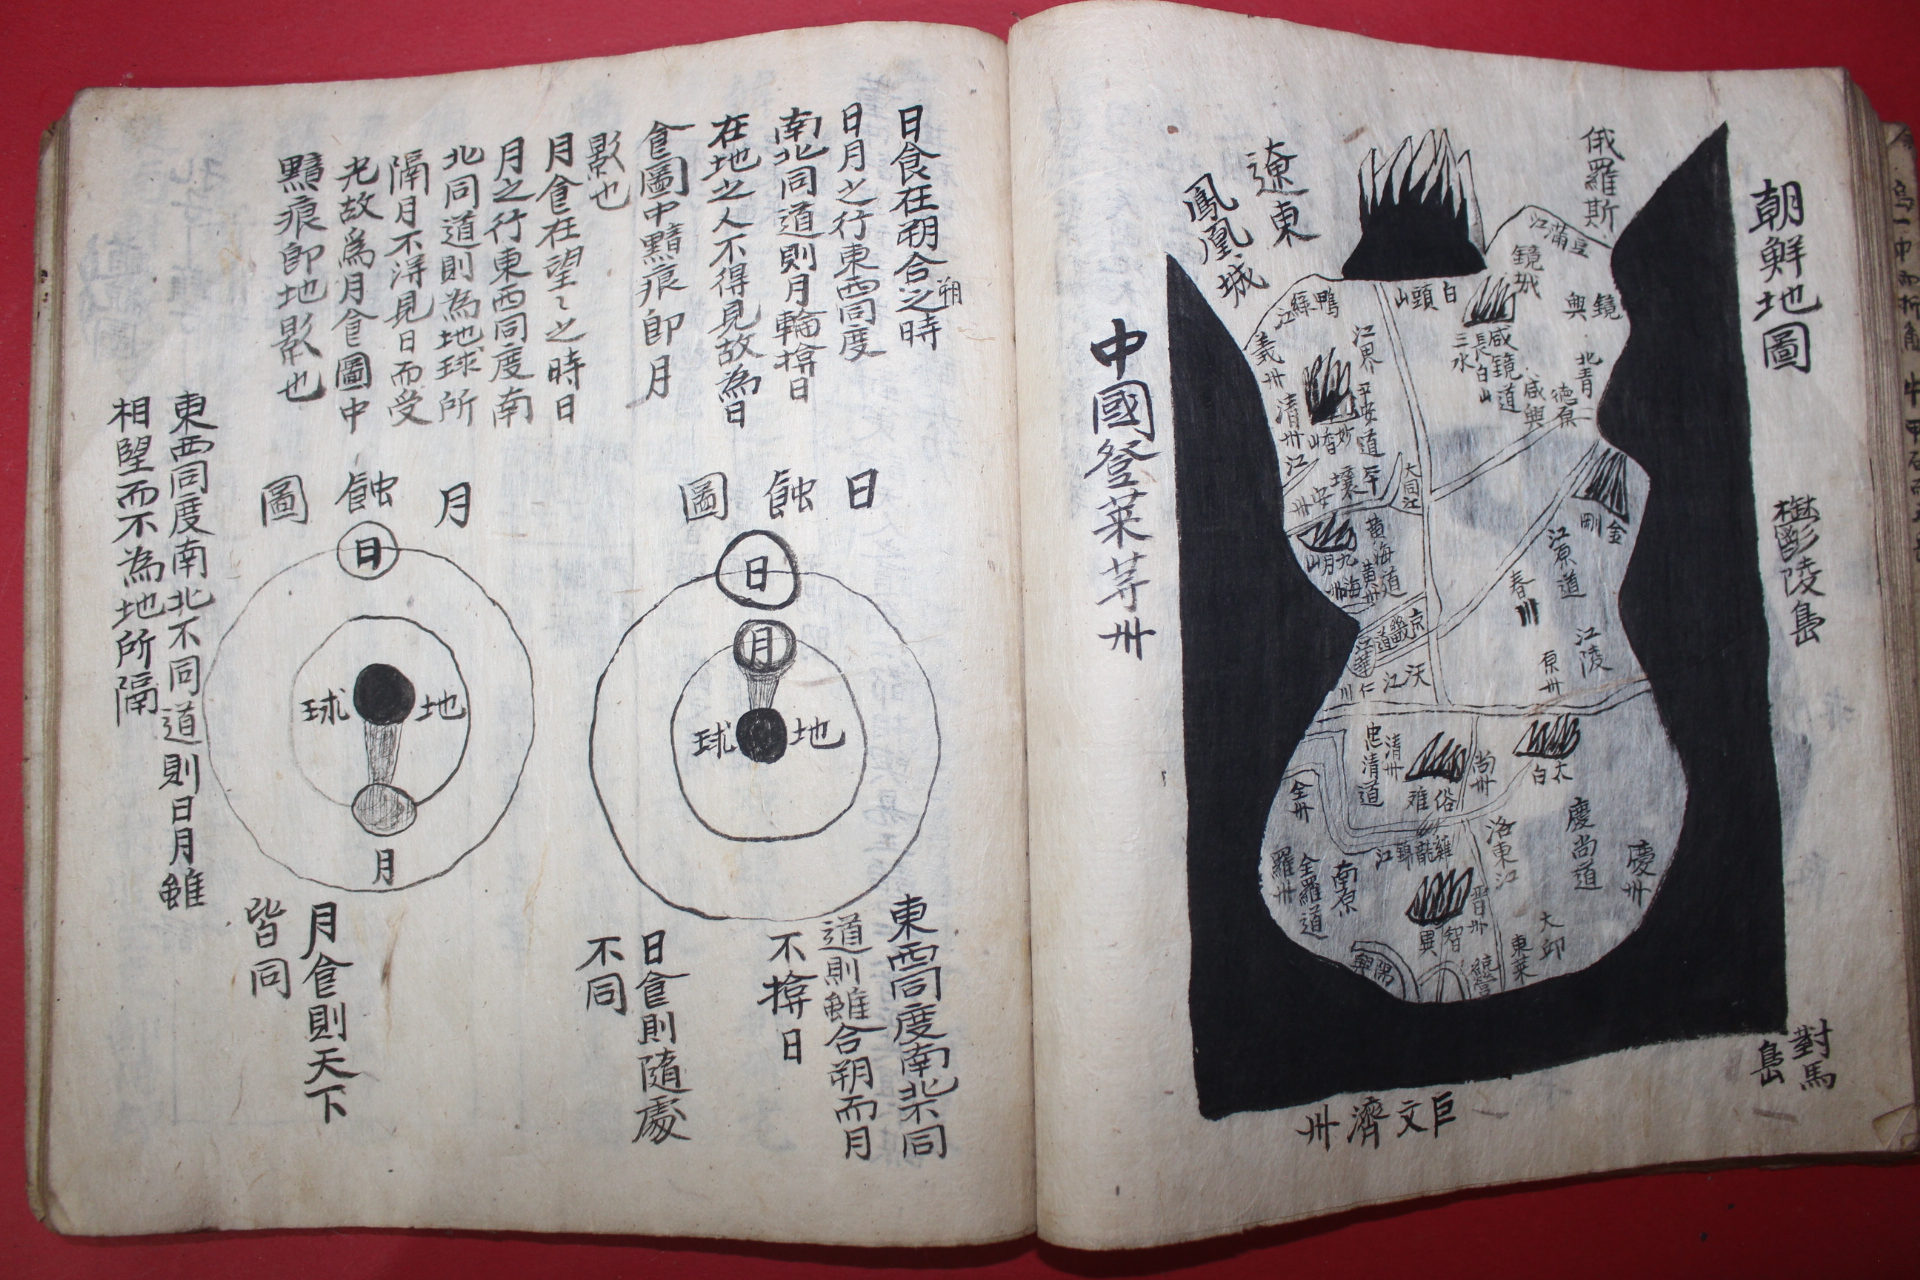 朝鮮地圖
俄羅斯
鬱陵島
對馬島
巨文濟州
遼東
鳳凰城
中國登萊等州
豆滿江
鏡城
鏡興
白頭山
鴨綠江
義州
江界
長白山
三水
咸鏡道
北青
德原
咸興
平安道
妙香山
清州江
大同江
平壤
安州
金剛
黃海道
九月山
黃州
海州
江原道
春川
江陵
原州
京畿道
江華
仁川
沃江
忠清道
清州
俗难
尚州
太白
全州
錦江
雞龍
洛東江
慶尚道
慶州
羅州
全羅道
南原
晉州
智異
大邱
東萊
統營
日食在朔合朔之時
日月之行東西同度
南北同道則月輪揜日
在地之人不得見故為日
食圖中黯痕卽月
影也
月食在望〻之時日
月之行東西同度南
北同道則為地球所
隔月不得見日而受
光故爲月食圖中
黯痕卽地影也
日蝕圖
日
月
地球
東西同度南北不同
道則雖合朔而月
不揜日
日食則隨處
不同
月蝕圖
日
地球
月
月食則天下
皆同
東西同度南北不同道則日月雖
相望而不為地所隔